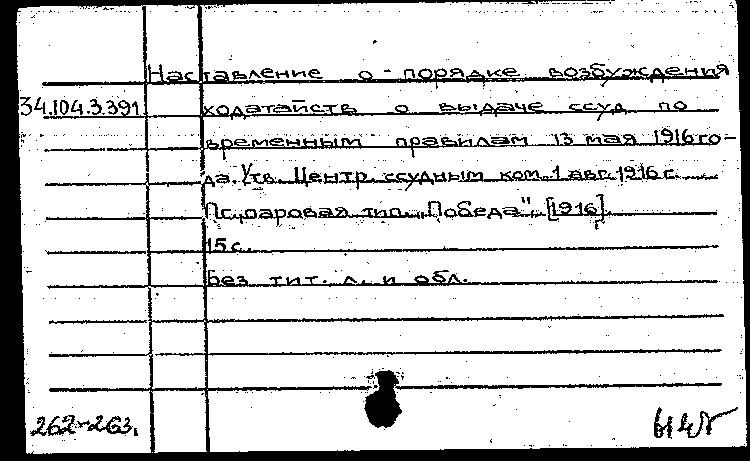 Наставление о порядке возбуждения
34.104.3.391 ходатайств о выдаче ссуд по
временным правилам 13 мая 1916 го-
да. Утв. Центр. ссудным ком. 1 авг. 1916 г.
Пг., паровая тип. „Победа", [1916].
15 с.
Без тит. л. и обл.
262-263.